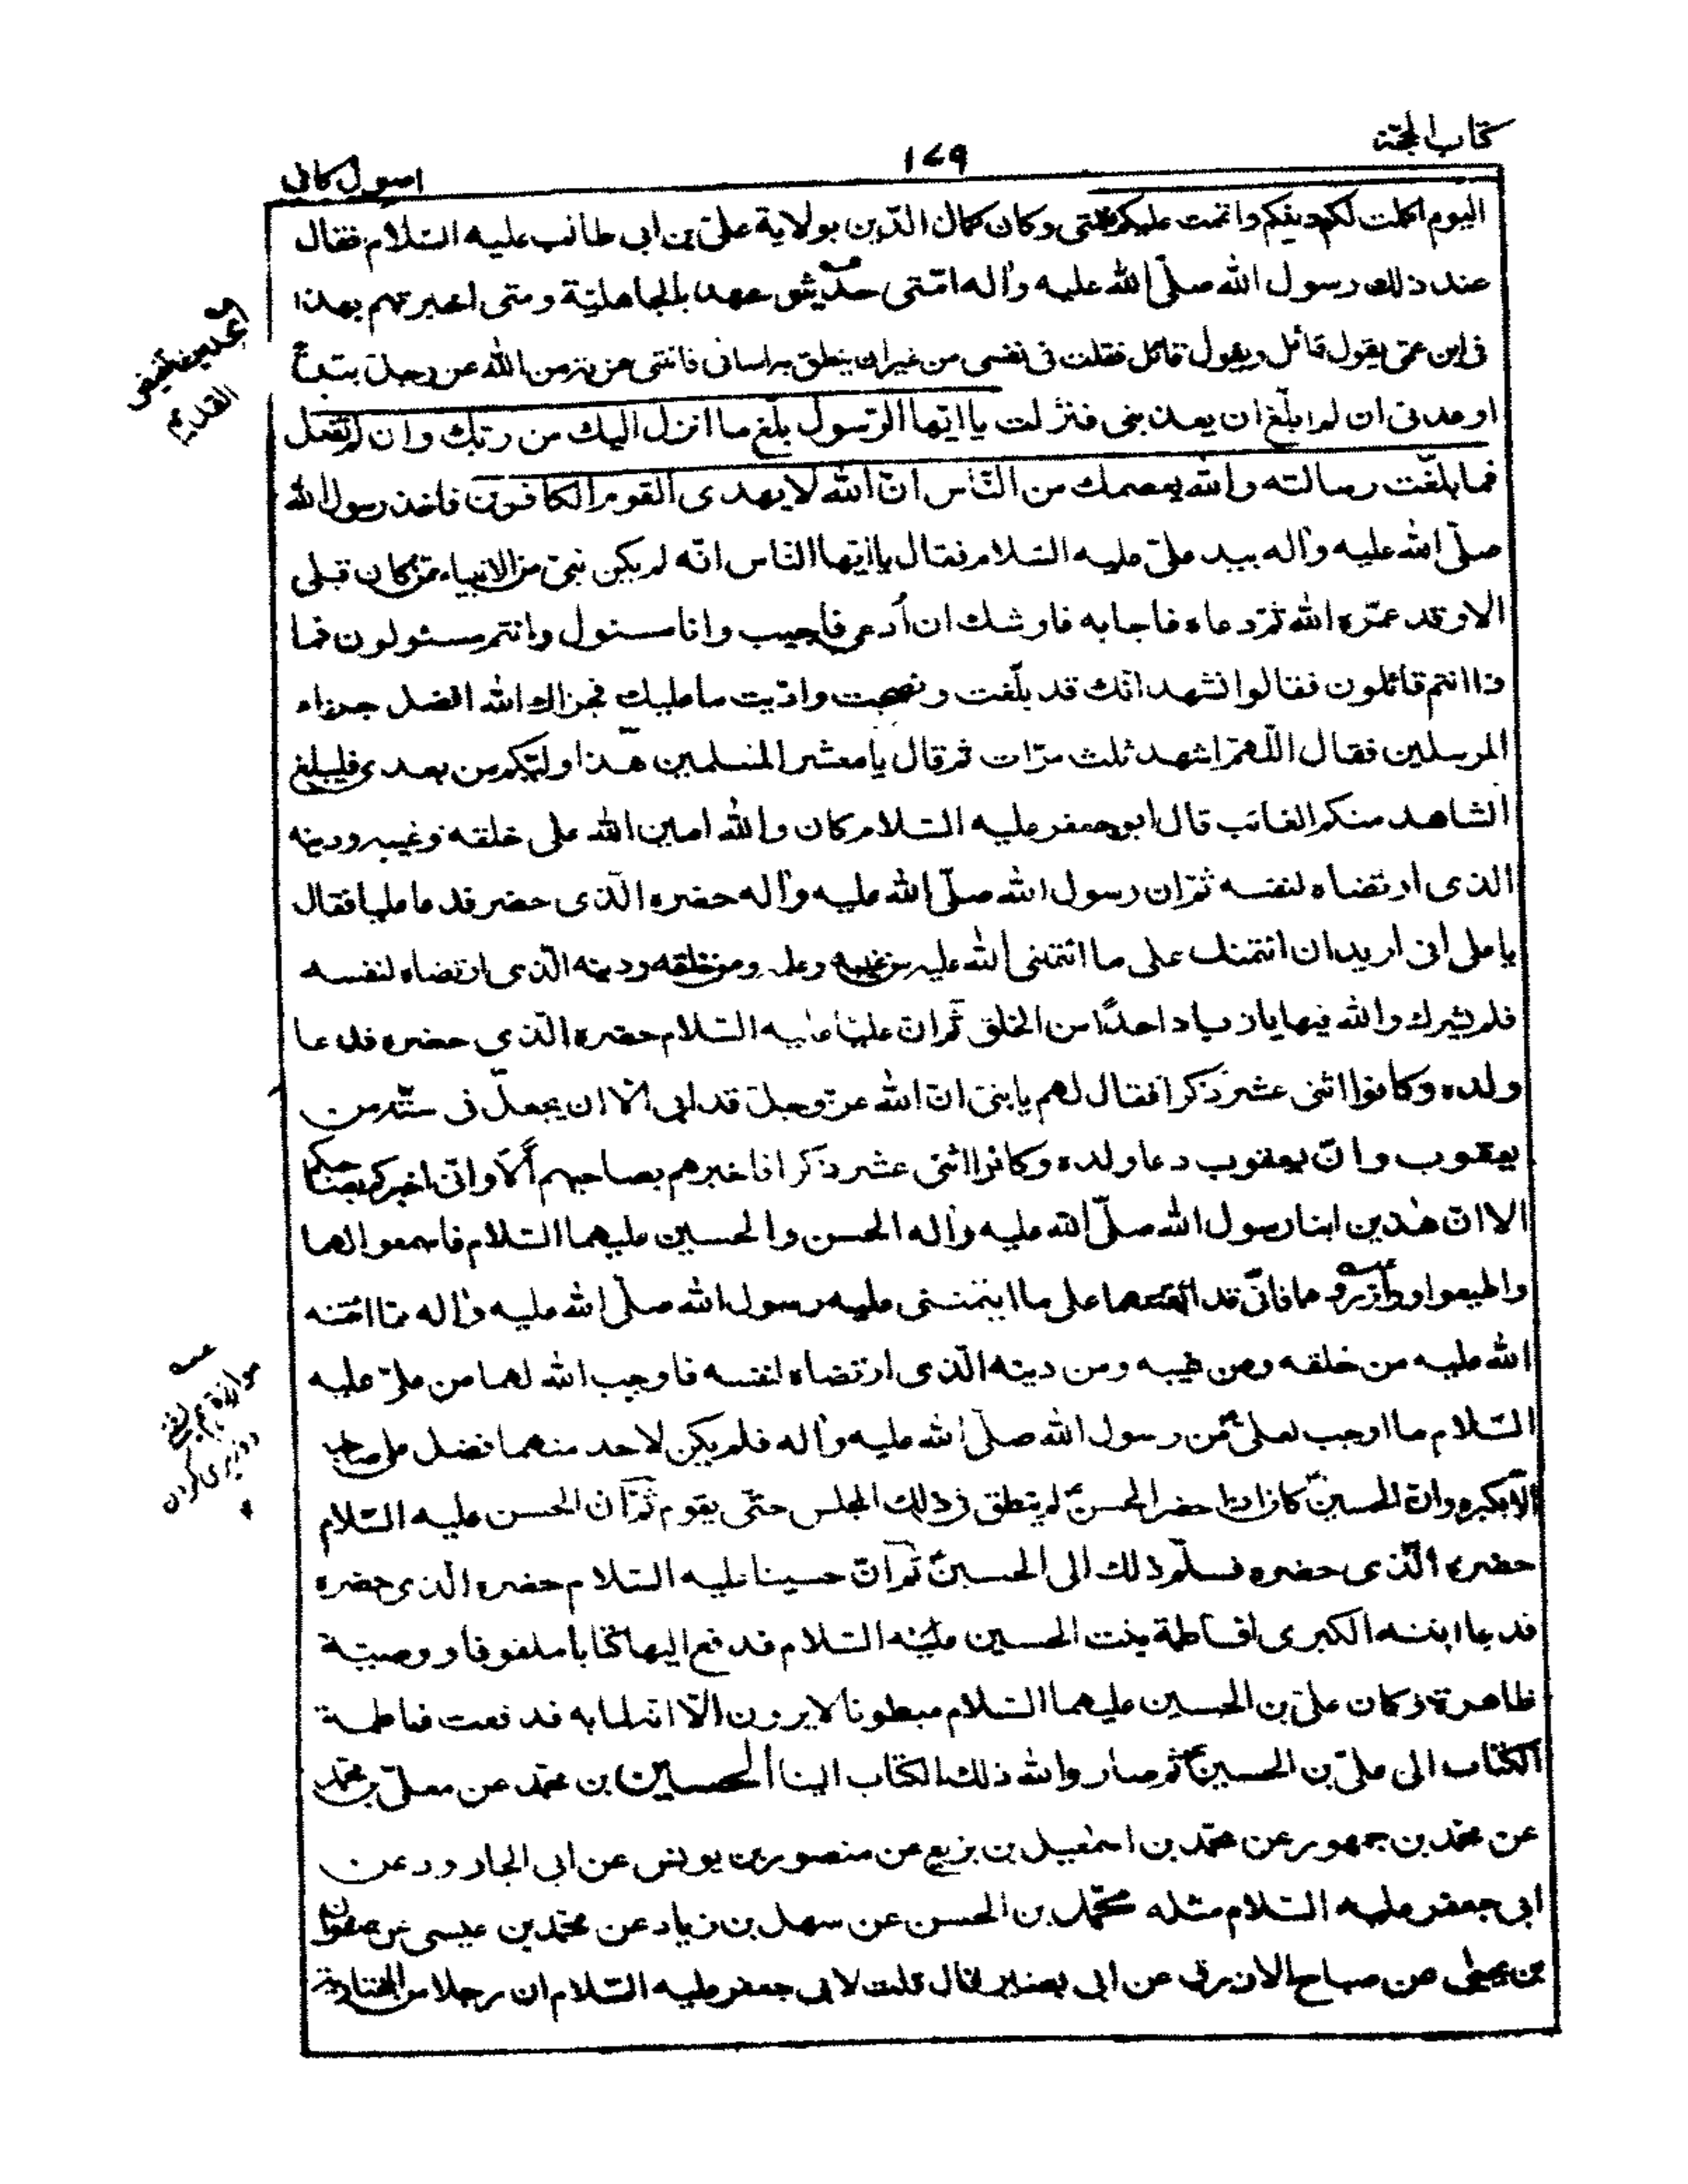 كتاب الحجّة
١٧٩
اصول كافى
اليوم اكملت لكم دينكم واتممت عليكم نعمتى وكان كمال الدّين بولاية علىّ بن ابى طالب عليه السّلام فقال
عند ذلك رسول الله صلّى الله عليه وآله امّتى حديثو عهد بالجاهليّة ومتى اخبرتهم بهذا
فى ابن عمّى يقول قائل ويقول قائل فقلت فى نفسى من غير ان ينطق به لسانى فاتتنى عزيمة من الله عزّ وجلّ بتلة
اوعدنى ان لم ابلّغ ان يعذبنى فنزلت يا ايّها الرّسول بلّغ ما انزل اليك من ربّك وان لم تفعل
فما بلّغت رسالته والله يعصمك من النّاس انّ الله لا يهدى القوم الكافرين فاخذ رسول الله
صلّى الله عليه وآله بيد علىّ عليه السّلام فقال يا ايّها النّاس انّه لم يكن نبىّ من الانبياء ممّن كان قبلى
الا وقد عمّره الله ثمّ دعاه فاجابه فاوشك ان اُدعى فاجيب وانا مسئول وانتم مسئولون فما
ذا انتم قائلون فقالوا نشهد انّك قد بلّغت ونصحت وادّيت ما عليك فجزاك الله افضل جزاء
المرسلين فقال اللّهمّ اشهد ثلث مرّات ثم قال يا معشر المسلمين هذا وليّكم من بعدى فليبلغ
الشاهد منكم الغائب قال ابو جعفر عليه السّلام كان والله امين الله على خلقه وغيبه ودينه
الذى ارتضاه لنفسه ثمّ ان رسول الله صلّى الله عليه وآله حضره الّذى حضر فدعا عليا فقال
يا على انى اريد ان ائتمنك على ما ائتمننى الله عليه من غيبه وعلمه ومن خلقه ودينه الّذى ارتضاه لنفسه
فلم يشرك والله فيها يا زياد احدًا من الخلق ثمّ انّ عليّا عليه السّلام حضره الّذى حضره فدعا
ولده وكانوا اثنى عشر ذكرا فقال لهم يا بنىّ انّ الله عزّ وجلّ قد ابى الّا ان يجعل فىّ سنّة من
يعقوب وانّ يعقوب دعا ولده وكانوا اثنى عشر ذكرا فاخبرهم بصاحبهم اَلا وانّى اخبركم بصاحبكم
الا انّ هٰذين ابنا رسول الله صلّى الله عليه وآله الحسن والحسين عليهما السّلام فاسمعوا لهما
واطيعوا ووازروهما فانّى قد ائتمنتهما على ما ائتمننى عليه رسول الله صلّى الله عليه وآله ممّا ائتمنه
الله عليه من خلقه ومن غيبه ومن دينه الّذى ارتضاه لنفسه فاوجب الله لهما من علىّ عليه
السّلام ما اوجب لعلىّ من رسول الله صلّى الله عليه وآله فلم يكن لاحد منهما فضل على صاحبه
الّا بكبره وانّ الحسين كان اذا حضر الحسن لم ينطق فى ذلك المجلس حتّى يقوم ثمّ ان الحسن عليه السّلام
حضره الّذى حضره فسلّم ذلك الى الحسين ثمّ انّ حسينا عليه السّلام حضره الّذى حضره
فدعا ابنته الكبرى فاطمة بنت الحسين عليه السّلام فدفع اليها كتابا ملفوفا ووصيّة
ظاهرة وكان علىّ بن الحسين عليهما السّلام مبطونا لا يرون الّا انّه لما به فدفعت فاطمة
الكتاب الى علىّ بن الحسين ثم صار والله ذلك الكتاب الينا الحسين بن محمّد عن معلّى بن محمّد
عن محمّد بن جمهور عن محمّد بن اسمٰعيل بن بزيع عن منصور بن يونس عن ابى الجارود عن
ابى جعفر عليه السّلام مثله محمّد بن الحسن عن سهل بن زياد عن محمّد بن عيسى عن صفوان
بن يحيى عن صباح الازرق عن ابى بصير قال قلت لابى جعفر عليه السّلام ان رجلا من المختارية
القديم